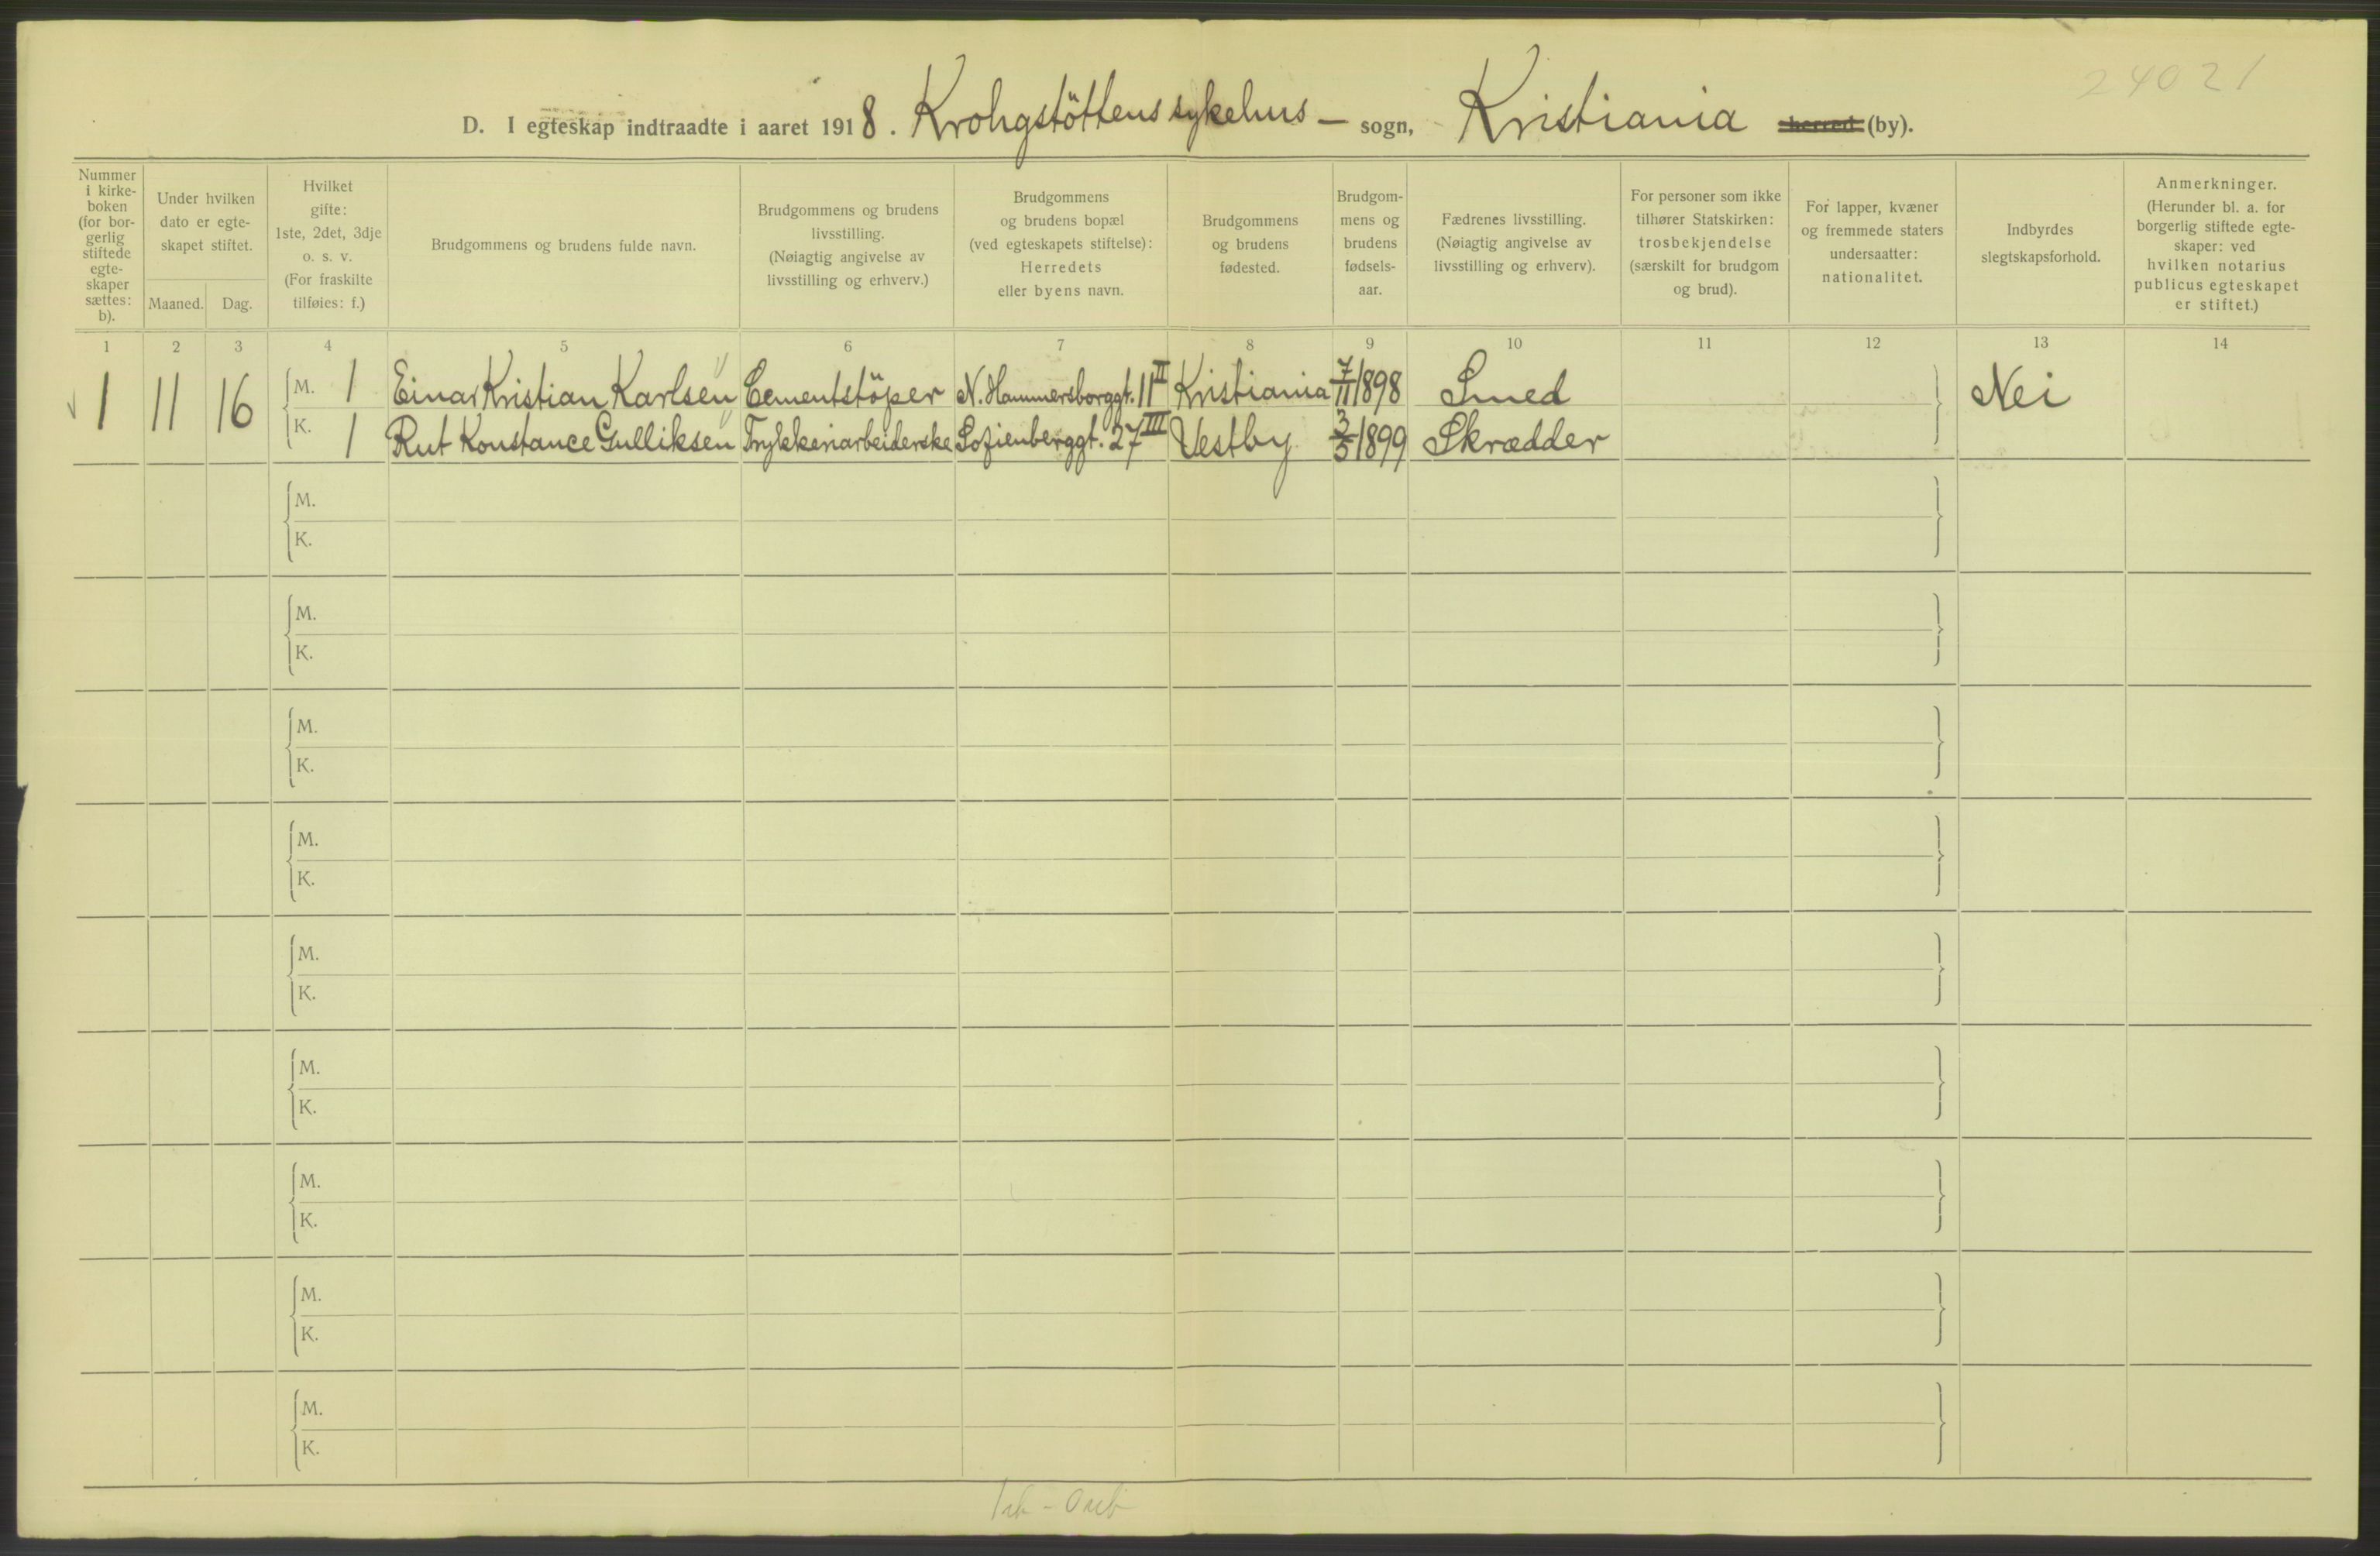 24021
D. I egteskap indtraadte i aaret 1918. Krohgstöttens sykehus – sogn, Kristiania herred (by).
Nummer i kirke-boken (for bor-gerlig stiftede egte-skaper sættes: b).
Under hvilken dato er egte-skapet stiftet.
Maaned. Dag.
Hvilket gifte: 1ste, 2det, 3dje o. s. v. (For fraskilte tilføies: f.)
Brudgommens og brudens fulde navn.
Brudgommens og brudens livsstilling. (Nøiagtig angivelse av livsstilling og erhverv.)
Brudgommens og brudens bopæl (ved egteskapets stiftelse): Herredets eller byens navn.
Brudgommens og brudens fødested.
Brudgom-mens og brudens fødsels-aar.
Fædrenes livsstilling. (Nøiagtig angivelse av livsstilling og erhverv).
For personer som ikke tilhører Statskirken: trosbekjendelse (særskilt for brudgom og brud).
For lapper, kvæner og fremmede staters undersaatter: nationalitet.
Indbyrdes slegtskapsforhold.
Anmerkninger. (Herunder bl. a. for borgerlig stiftede egte-skaper: ved hvilken notarius publicus egteskapet er stiftet.)
1 2 3 4 5 6 7 8 9 10 11 12 13 14
1 11 16 M. 1 Einar Kristian Karlsen Cementstöper N. Hammersborggt. 11 II Kristiania 7/11 1898 Smed Nei
K. 1 Rut Konstance Gulliksen Trykkeriarbeiderske Sofienberggt. 27 III Vestby 3/5 1899 Skrædder
M.
K.
M.
K.
M.
K.
M.
K.
M.
K.
M.
K.
M.
K.
M.
K.
M.
K.